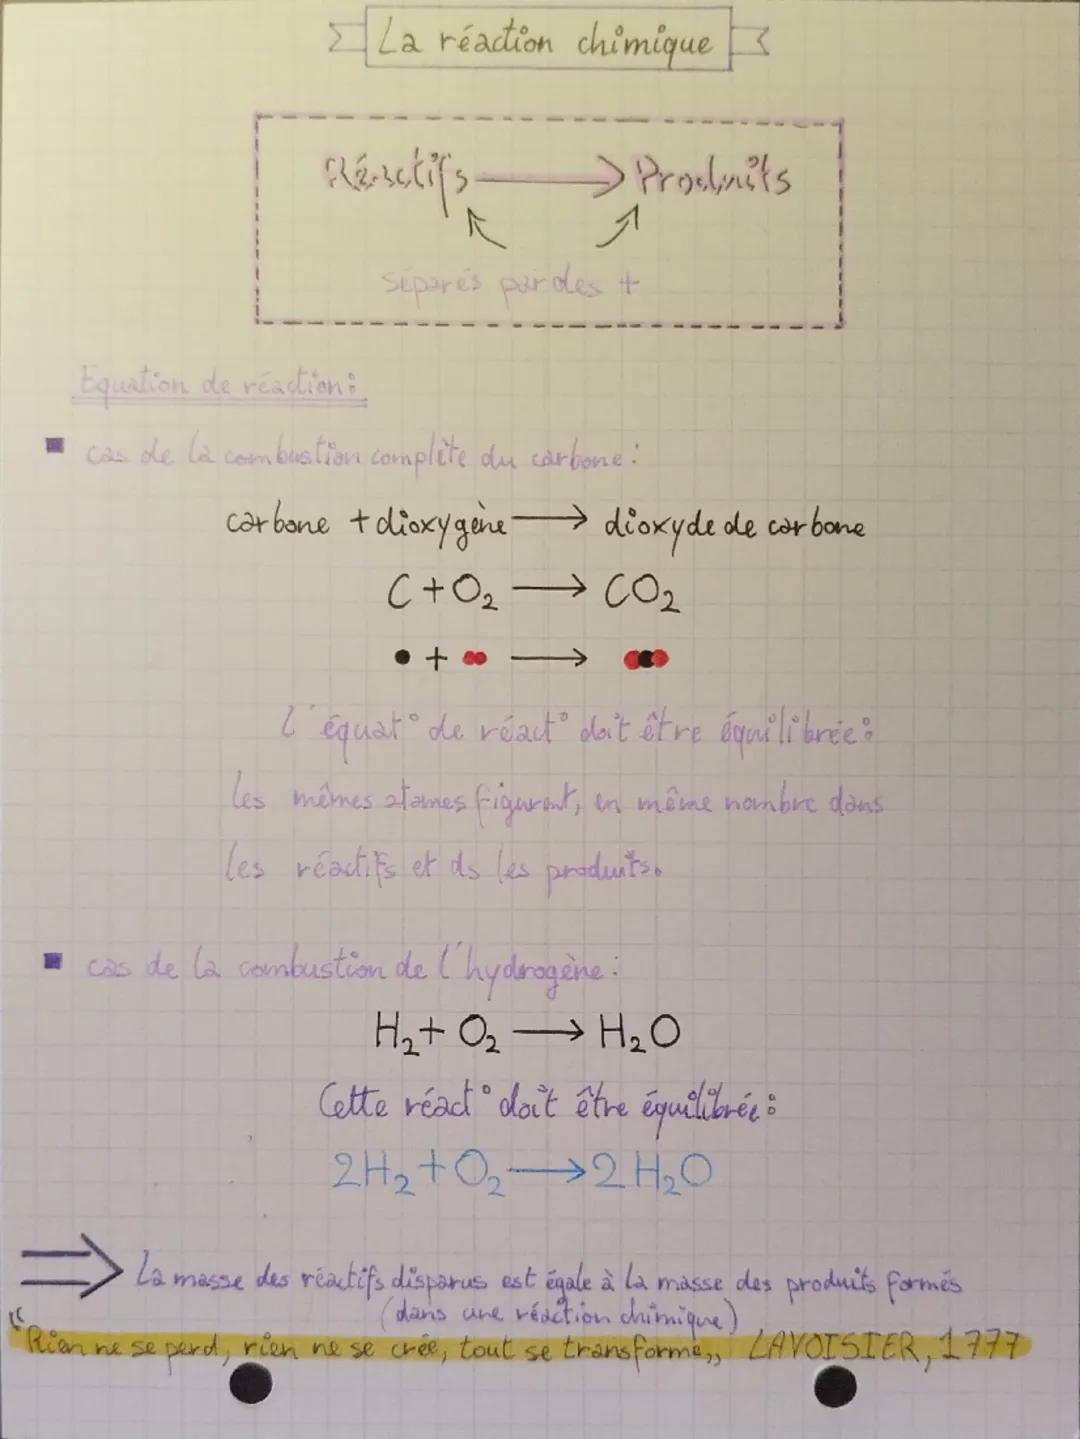 La réaction chimique
Réactifs ⟶ Produits
séparés par des +
Equation de réaction:
cas de la combustion complète du carbone:
carbone + dioxygène ⟶ dioxyde de carbone
C + O₂ ⟶ CO₂
+ ⟶
L'équat° de réact° doit être équilibrée:
les mêmes atomes figurent, en même nombre dans
les réactifs et ds les produits.
cas de la combustion de l'hydrogène:
H₂ + O₂ ⟶ H₂O
Cette réact° doit être équilibrée:
2H₂ + O₂ ⟶ 2 H₂O
⟹ La masse des réactifs disparus est égale à la masse des produits formés
(dans une réaction chimique)
"Rien ne se perd, rien ne se crée, tout se transforme„ LAVOISIER, 1777